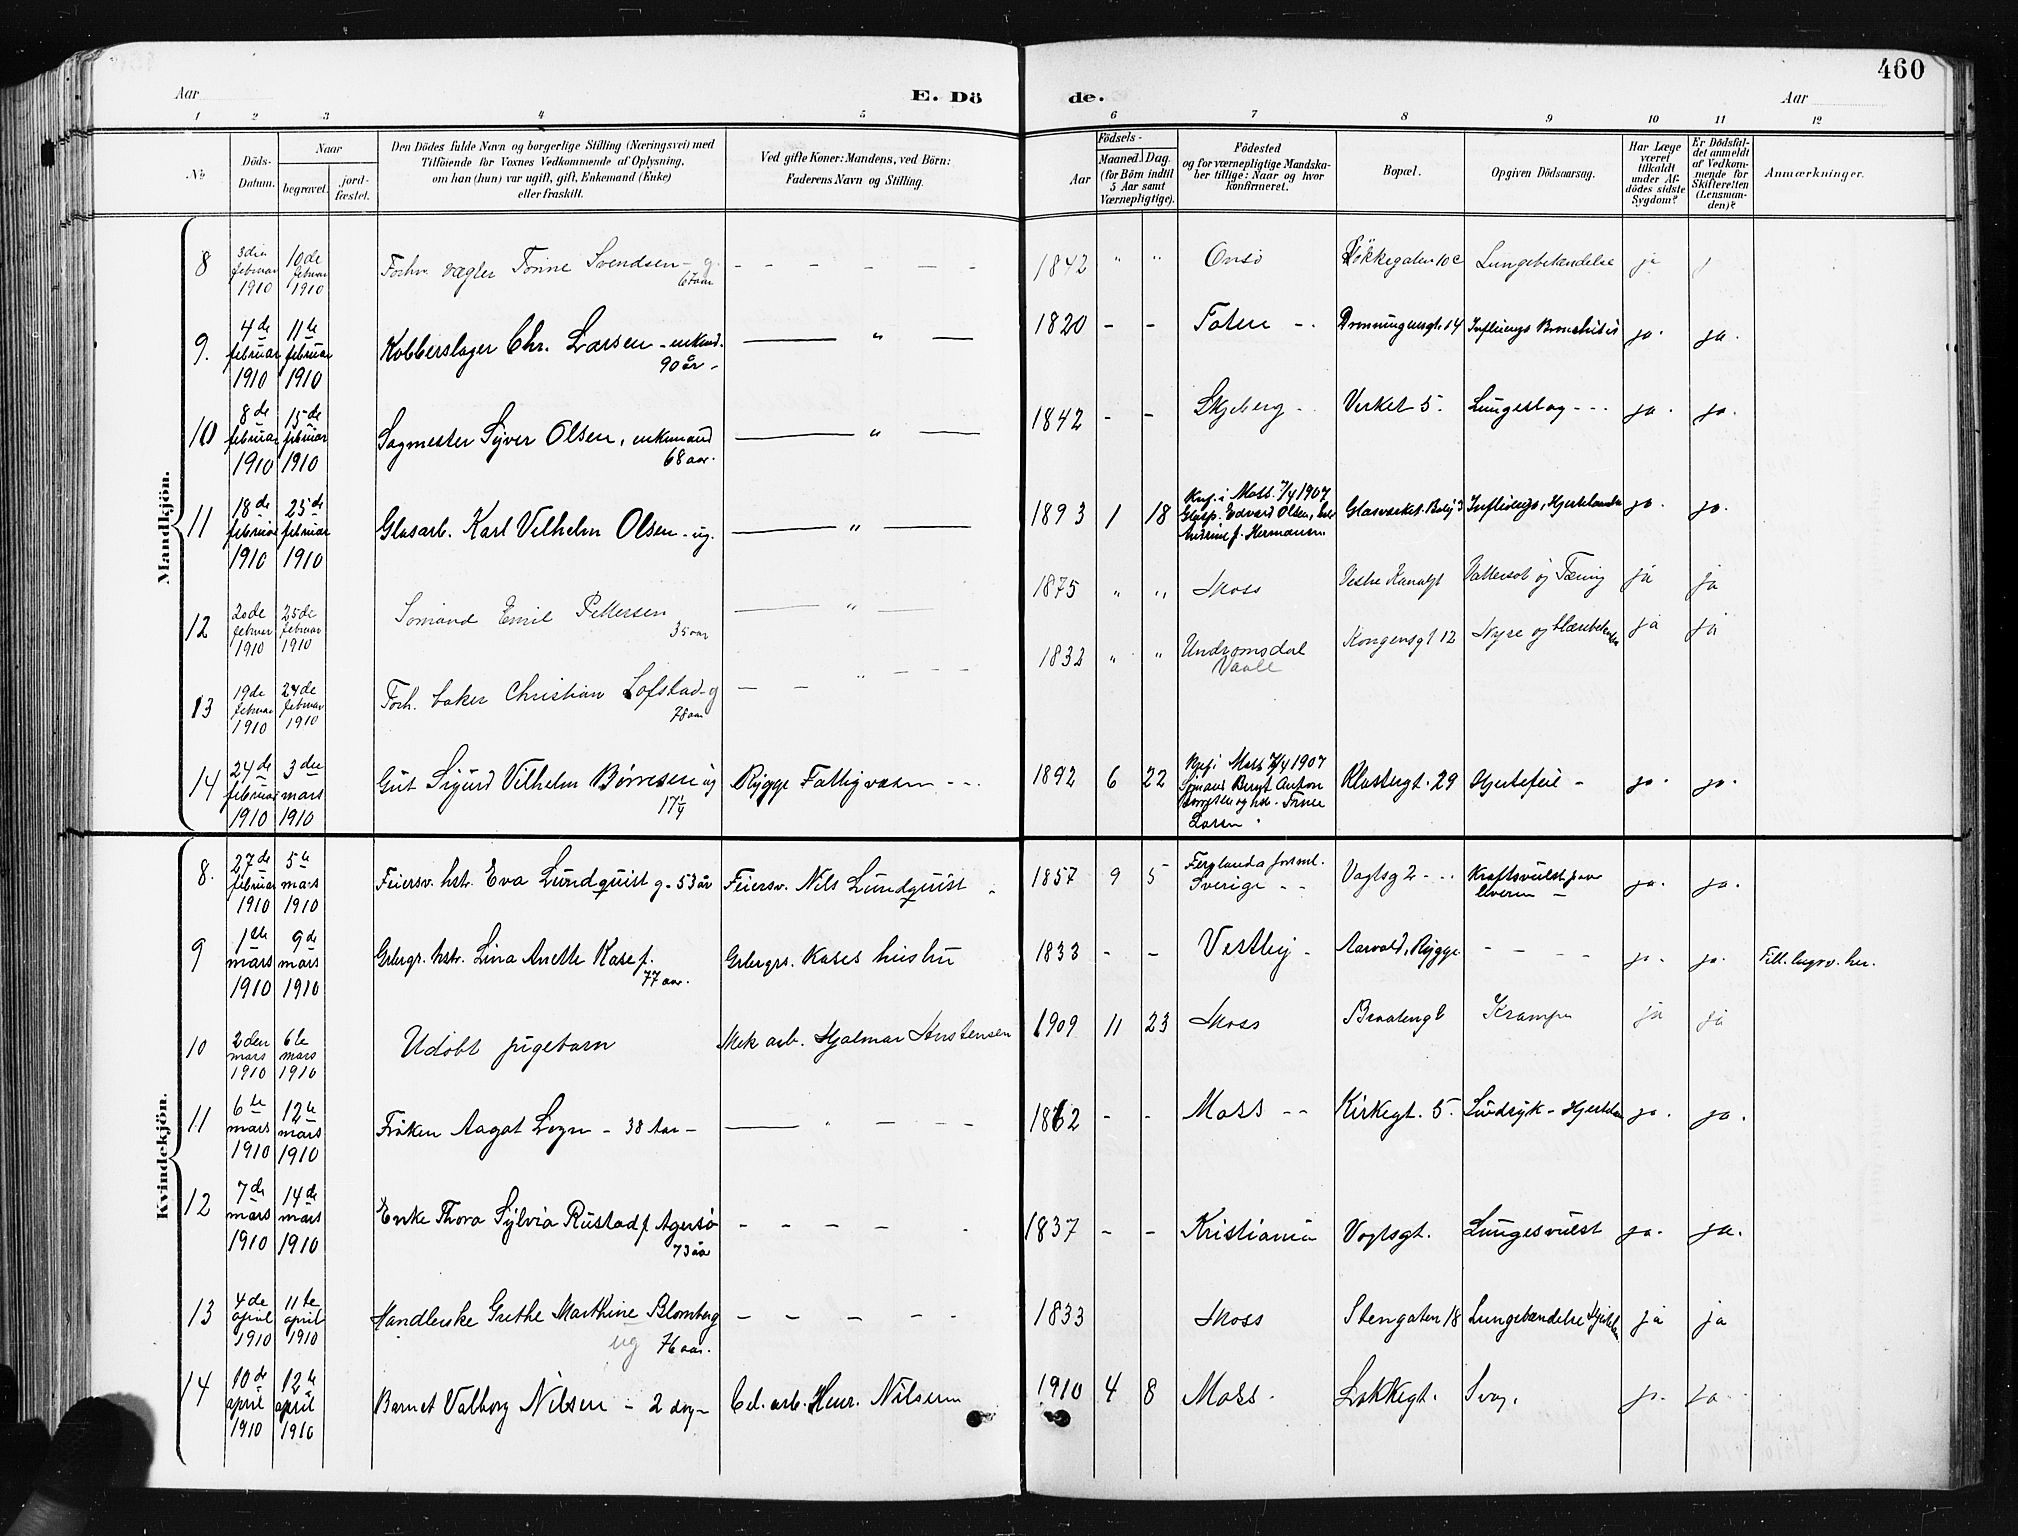 460
Aar
E. Dö
de.
Aar
1 2 3 4 5 6 7 8 9 10 11 12
No
Döds-
Datum.
Naar
begravet.
jord-
fæstet.
Den Dödes fulde Navn og borgerlige Stilling (Næringsvei) med
Tilföiende for Voxnes Vedkommende af Oplysning,
om han (hun) var ugift, gift, Enkemand (Enke)
eller fraskilt.
Ved gifte Koner: Mandens, ved Börn:
Faderens Navn og Stilling.
Födsels-
Aar
Maaned. Dag.
(for Börn indtil
5 Aar samt
Værnepligtige).
Födested
og for værnepligtige Mandska-
ber tillige: Naar og hvor
konfirmeret.
Bopæl.
Opgiven Dödsaarsag.
Har Læge
været
tilkaldt
under Af-
dödes sidste
Sygdom?
Er Dödsfal-
det anmeldt
af Vedkom-
mende for
Skifteretten
(Lensman-
den)?
Anmærkninger.
Mandkjön.
8 3die februar 1910 10de februar 1910 Forhv. vægler Tonne Svendsen - g. 67 aar 1842 " " Onsö Løkkegaten 10c Lungebetændelse ja
9. 4de februar 1910 11te februar 1910 Kobberslager Chr. Larsen - enkmd. 90 år - " 1820 - - Toten - Dronningensgt. 14 Influenza Bronchitis ja. ja.
10 8de februar 1910 15de februar 1910 Sagmester Syver Olsen, enkemand 68 aar. " 1842 - - Skjeberg - Verket 5. Lungeslag - - - ja. ja.
11 18de februar 1910 25de februar 1910 Glasarb. Karl Vilhelm Olsen - ug. " 1893 1 18 Knf. i Moss 7/4 1907 Edvard Olsen, f. Hermansen Glasverket. Influenza, ja. ja.
12 20de februar 1910 25de februar 1910 Sømand Emil Pettersen 35 aar " 1875 " " Moss Vestre Kanalgt Vattersot og Tæring ja ja
13 19de februar 1910 24de februar 1910 Forh. baker Christian Lofstad - g 78 aar " 1832 " " Undromsdal Vaale Kongensgt 12 Nyre og blærebetændelse ja ja
14 24de februar 1910 3die mars 1910 Gut Sigurd Vilhelm Børresen ug 17 1/4 Rygge Fattigvæsen - - 1892 6 22 Knf. i Moss 7/4 1907 Sömand Bernt Anton Børresen og hst. Larsen Klostergt. 29 Hjertefeil - ja. ja.
Kvindekjön.
8. 27de februar 1910 5te mars 1910 Feiersv. hstr. Eva Lundquist g. 53 år Feiersv. Nils Lundquist 1857 9 5 Ferglanda forsml. Sverige - - Vogtsg 2 - - - Kræftsvulst paa leveren - ja. ja.
9 1ste mars 1910 9de mars 1910 Grbergr. hstr. Lina Anette Kase f. 77 aar. Grbergrs. Kases hustru 1833 - - Vestby - Aarvold, Rygge - - - ja. ja. her.
10 2den mars 1910 6te mars 1910 Udøbt pigebarn Mek arb. Hjalmar 1909 11 23 Moss Braatengt Krampe ja ja
11 6te mars 1910 12te mars 1910 Frøken Aagot Løgn - 38 Aar - 1862 - - Moss - - Kirkegt. 5. ja. ja.
12 7de mars 1910 14de mars 1910 Enke Thora Sylvia Rustad f. Agersø 73 år - - - - 1837 - - Kristiania Vogtsgt. Lungesvulst ja. ja.
13 4de april 1910 11te april 1910 Handlerske Grethe Marthine Blomberg ug 76 aar. - - - - 1833 Moss Stengaten 18 Lungebændelse ja ja
14 10de april 1910 12te april 1910 Barnet Valborg Nilsen - 2 dag - Cel. arb. Henr. Nilsen 1910 4 8 Moss. Løkkegt. Svag. ja. ja